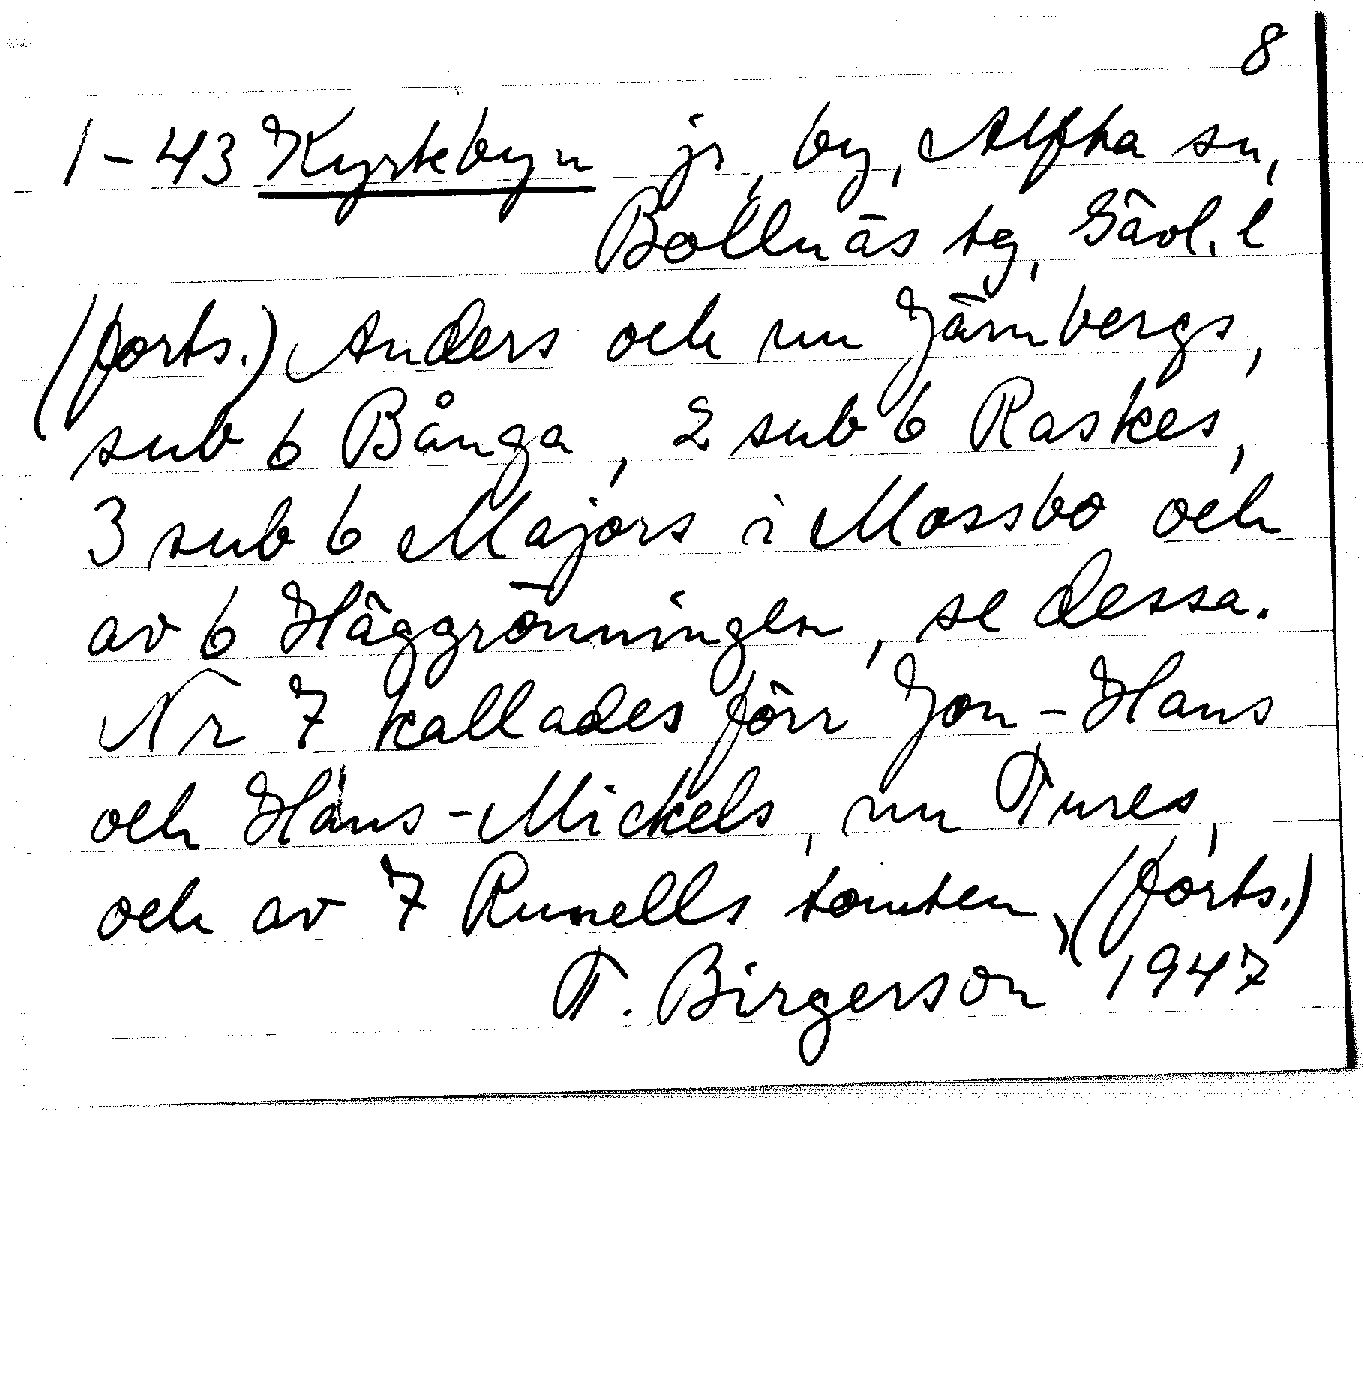 8
1-43 Kyrkbyn jr, by, Alfta sn,
Bollnäs tg, Gävl. l
(forts.) Anders och nu Järnbergs,
sub 6 Bånga, 2 sub 6 Raskes,
3 sub 6 Majors i Mossbo och
av 6 Häggrönningen, se dessa.
Nr 7 kallades förr Jon-Hans
och Hans-Mickels, nu Tures,
och av 7 Runells tomten, (forts.)
T. Birgerson 1947